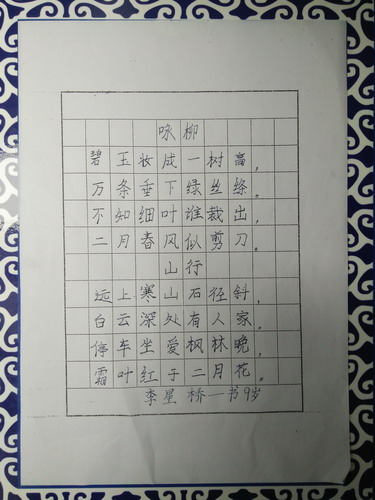 咏柳
碧玉妆成一树高，
万条垂下绿丝绦。
不知细叶谁裁出，
二月春风似剪刀。
山行
远上寒山石径斜，
白云深处有人家。
停车坐爱枫林晚，
霜叶红于二月花。
李星桥一书9岁